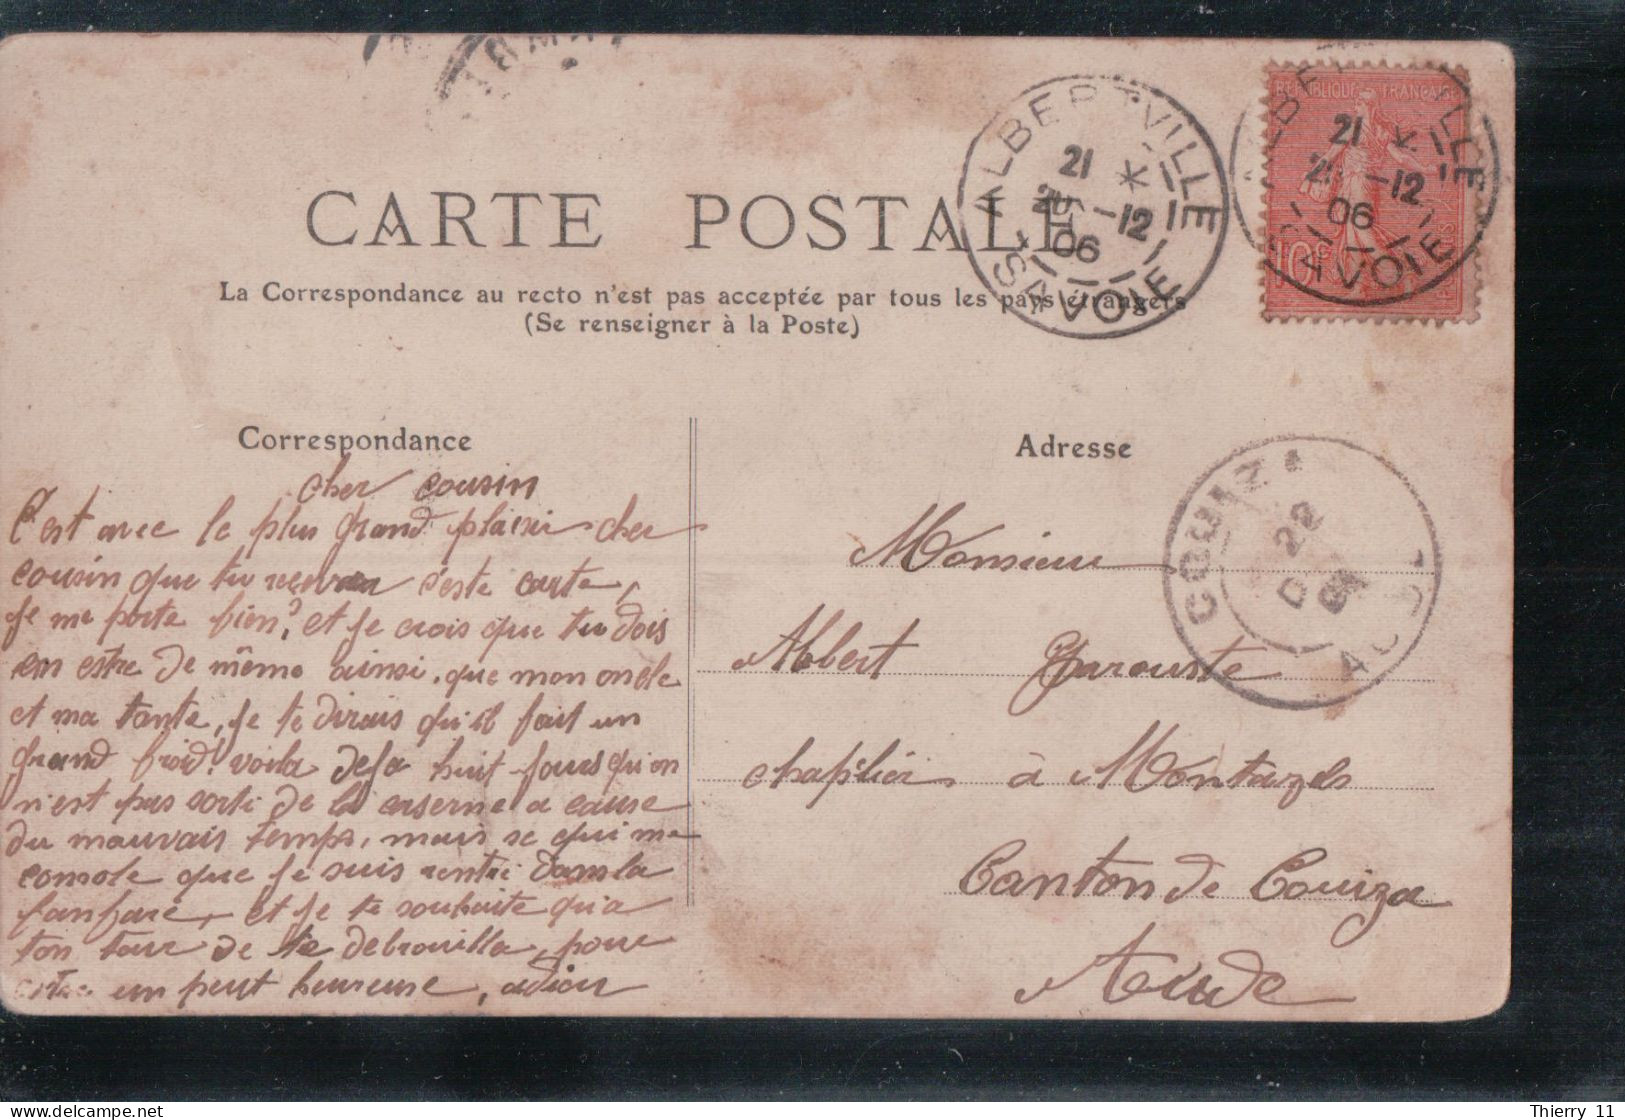 CARTE POSTALE
La Correspondance au recto n'est pas acceptée par tous les pays étrangers
(Se renseigner à la Poste)
ALBERTVILLE
21
21 -12
06
SAVOIE
RÉPUBLIQUE FRANÇAISE
ALBERTVILLE
21
21 -12
06
SAVOIE
10c
Correspondance
cher cousin
C'est avec le plus grand plaisir cher
cousin que tu c'este carte,
je me porte bien? et je crois que tu dois
en estre de même ainsi, que mon oncle
et ma tante, je te dirais qu'il fait un
grand froid! voila deja huit jours qu'on
n'est pas sorti de la caserne a cause
du mauvais temps, mais se qui me
console que je suis rentré dans la
fanfare, et je te souhaite qu'a
ton tour de te debrouilla, pour
estre un peut heureuse, adieu
Adresse
Monsieur
Albert Garouste
chaplier à Montazels
Canton de Couiza
Aude
COUIZA
22
D
AUDE
Thierry 11